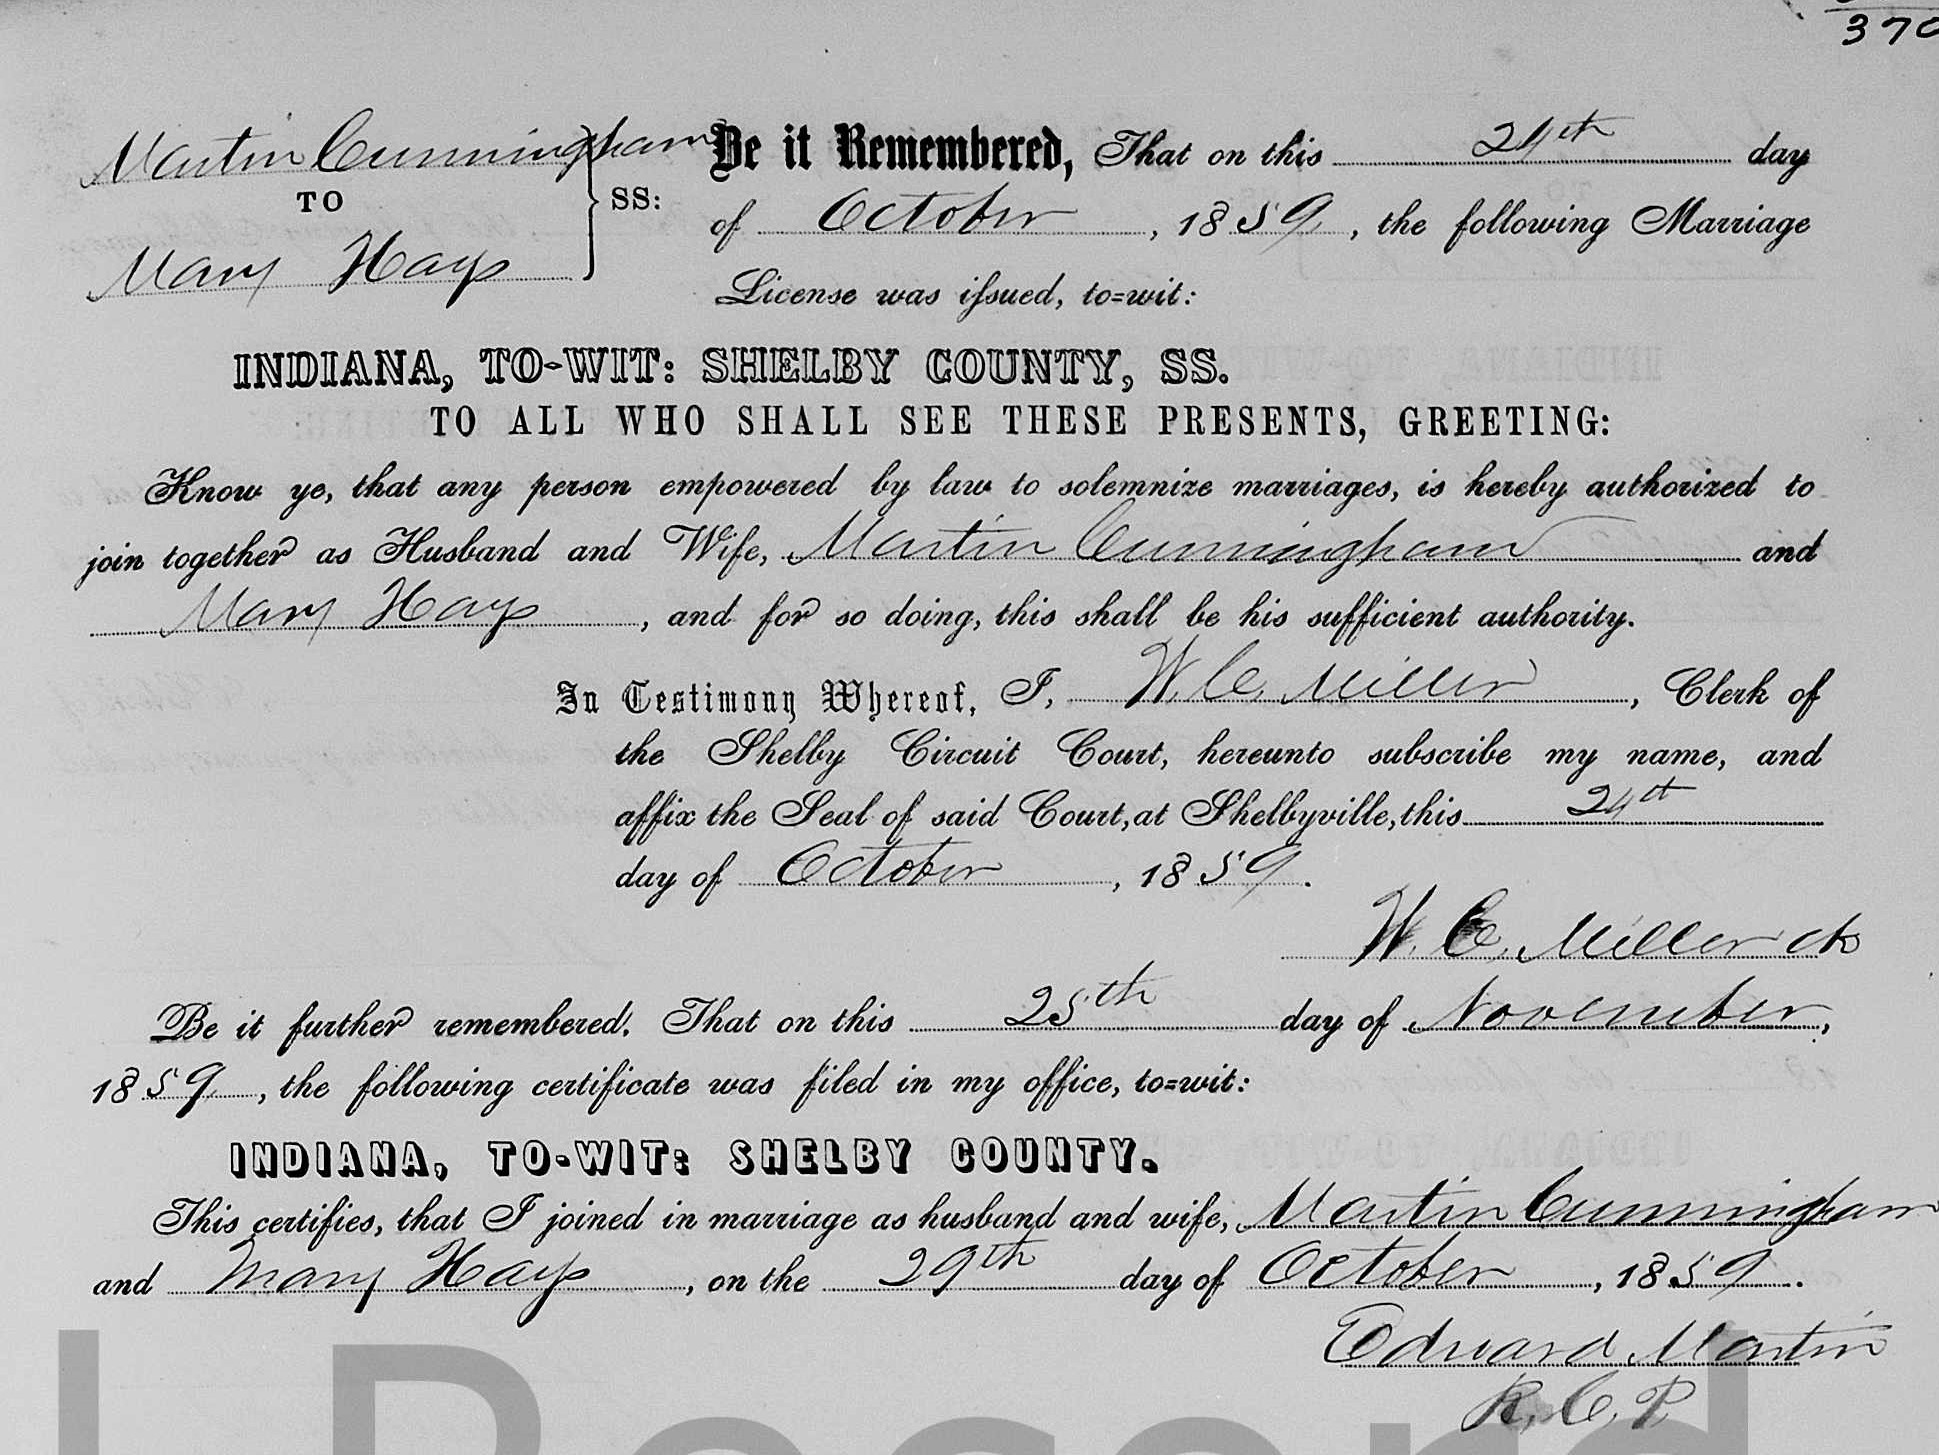 370
Martin Cunningham
TO
Mary Hays
SS:
Be it Remembered, That on this 24th day
of October, 1859, the following Marriage
License was issued, to=wit:
INDIANA, TO-WIT: SHELBY COUNTY, SS.
TO ALL WHO SHALL SEE THESE PRESENTS, GREETING:
Know ye, that any person empowered by law to solemnize marriages, is hereby authorized to
join together as Husband and Wife, Martin Cunningham and
Mary Hays, and for so doing, this shall be his sufficient authority.
In Testimony Whereof, I, W. C. Miller, Clerk of
the Shelby Circuit Court, hereunto subscribe my name, and
affix the Seal of said Court, at Shelbyville, this 24th
day of October, 1859.
W. C. Miller ck
Be it further remembered, That on this 25th day of November,
1859, the following certificate was filed in my office, to=wit:
INDIANA, TO-WIT: SHELBY COUNTY.
This certifies, that I joined in marriage as husband and wife, Martin Cunningham
and Mary Hays, on the 29th day of October, 1859.
Edward Martin
R. C. P